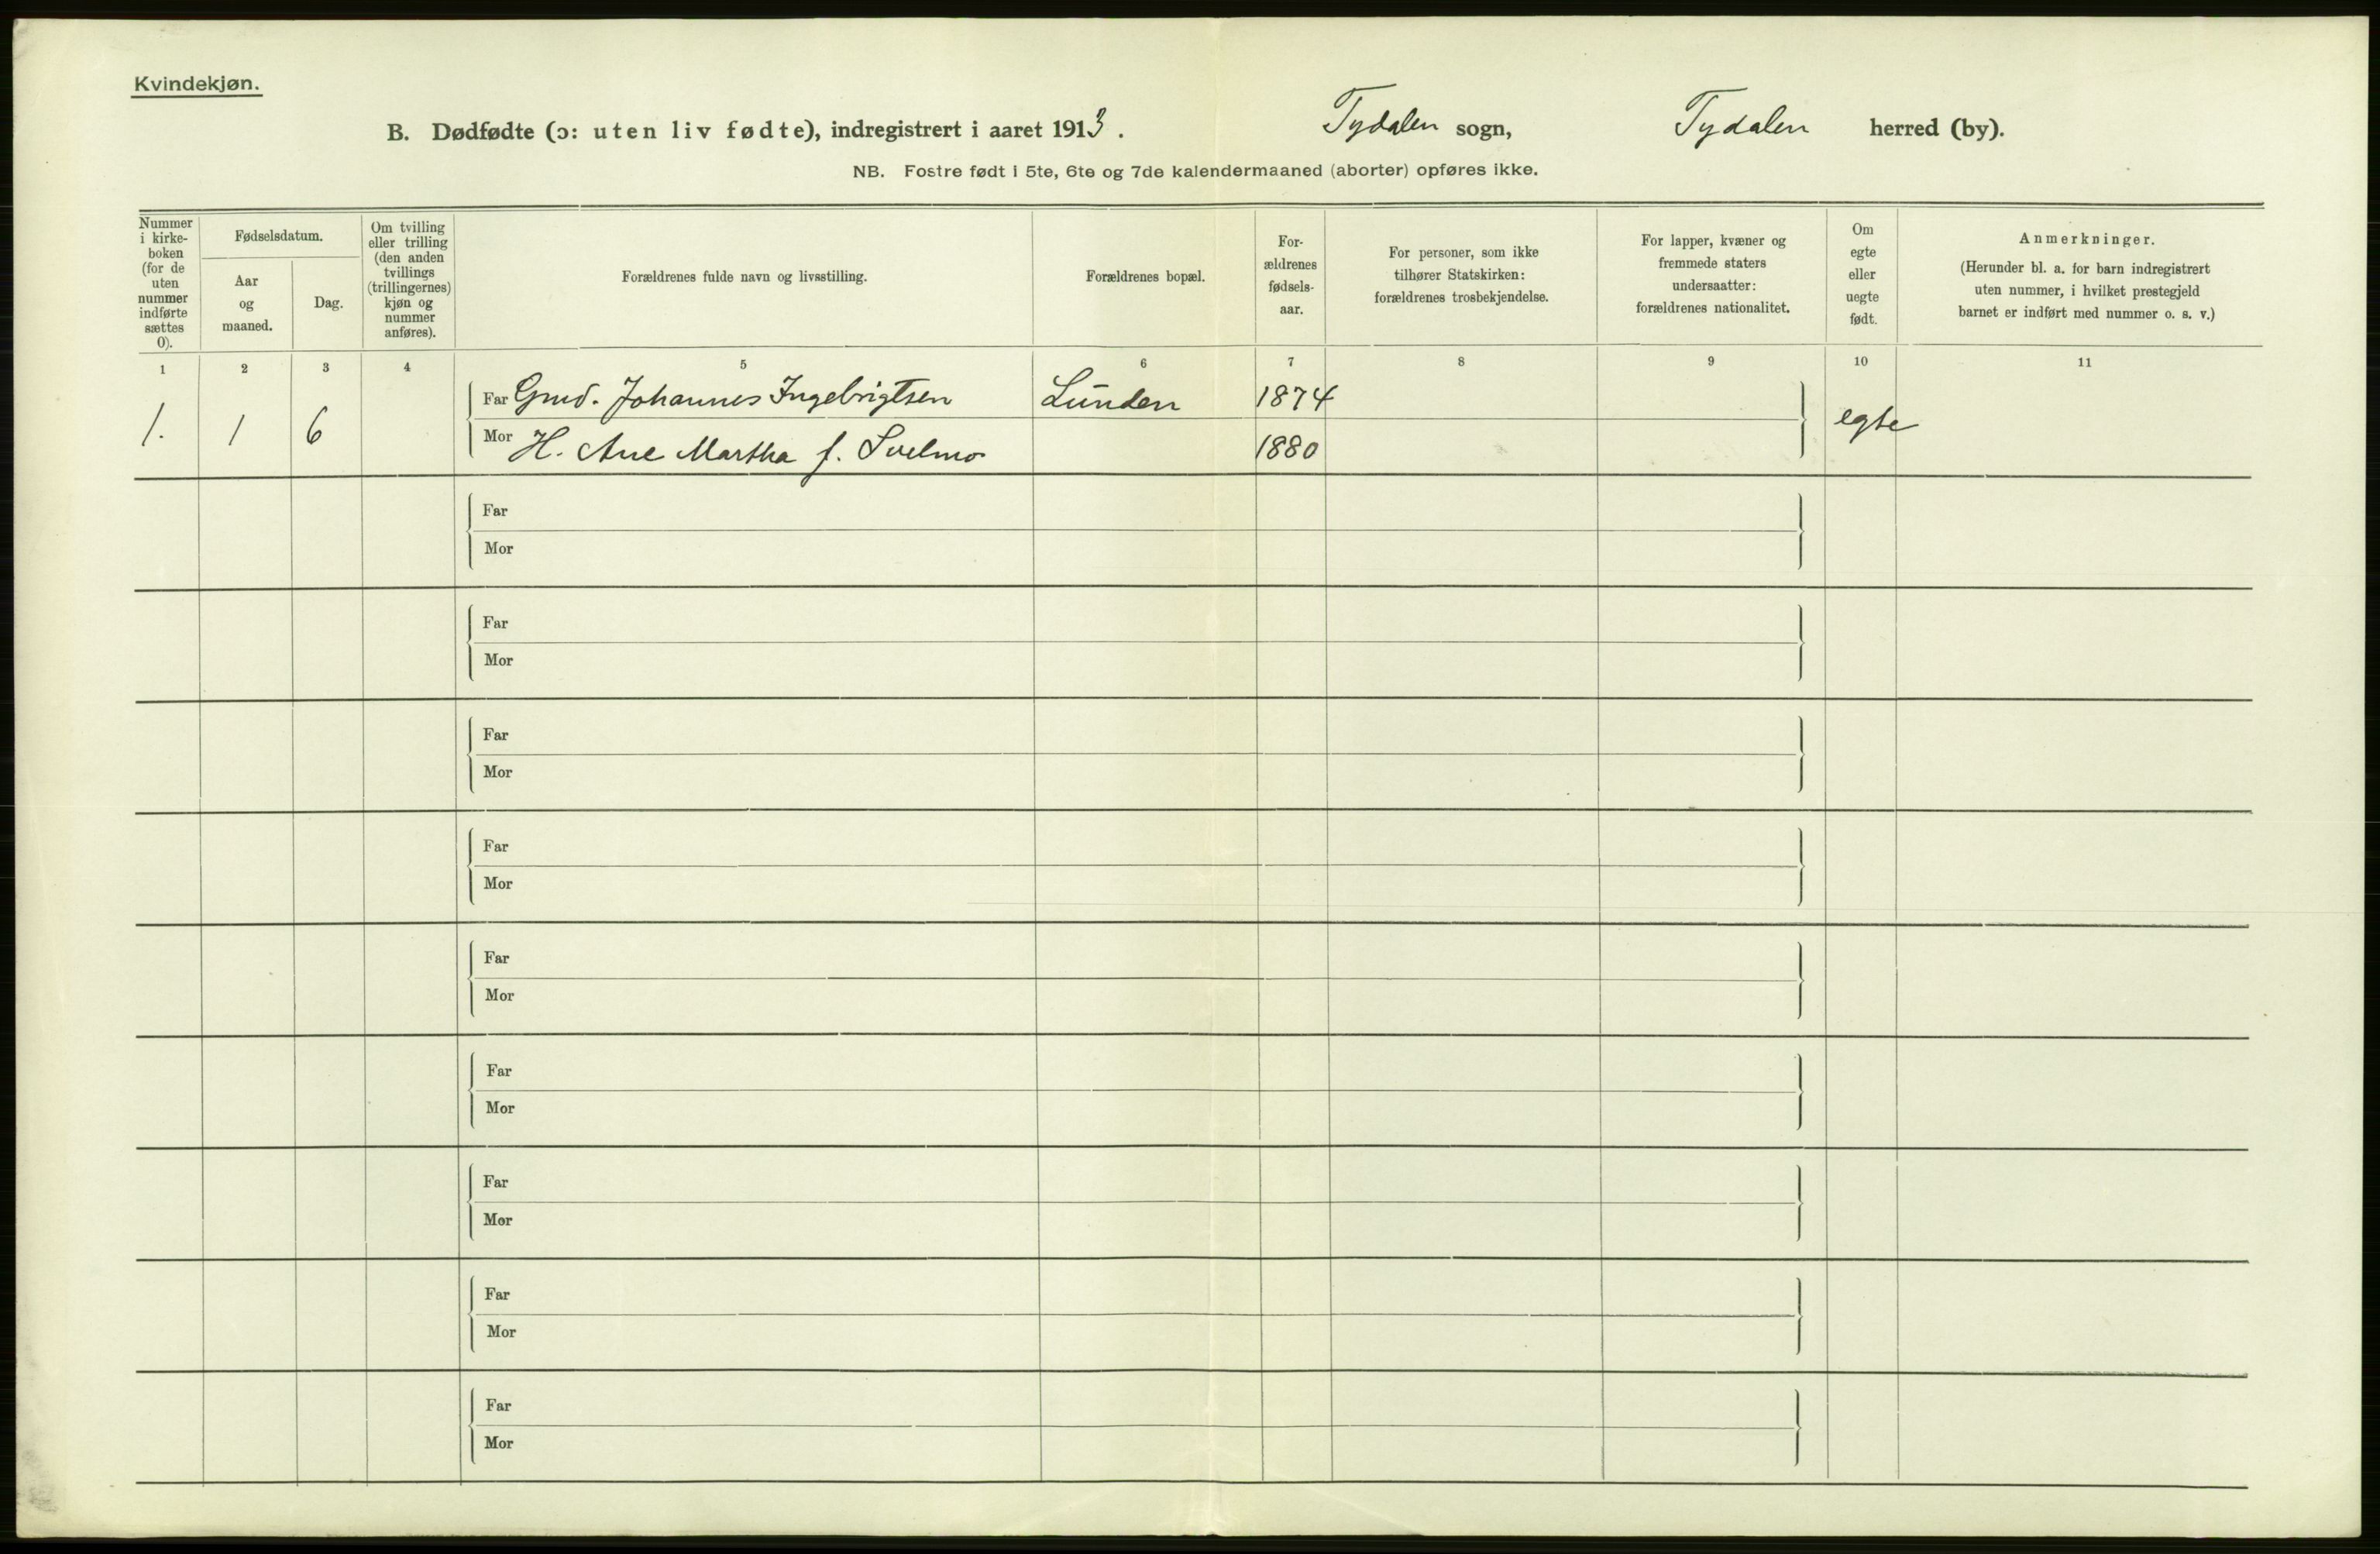 Kvindekjøn.
B. Dødfødte (ɔ: uten liv fødte), indregistrert i aaret 1913. Tydalen sogn, Tydalen herred (by).
NB. Fostre født i 5te, 6te og 7de kalendermaaned (aborter) opføres ikke.
Nummer
i kirke-
boken
(for de
uten
nummer
indførte
sættes
0).
Fødselsdatum.
Aar
og
maaned.
Dag.
Om tvilling
eller trilling
(den anden
tvillings
(trillingernes)
kjøn og
nummer
anføres).
Forældrenes fulde navn og livsstilling.
Forældrenes bopæl.
For-
ældrenes
fødsels-
aar.
For personer, som ikke
tilhører Statskirken:
forældrenes trosbekjendelse.
For lapper, kvæner og
fremmede staters
undersaatter:
forældrenes nationalitet.
Om
egte
eller
uegte
født.
Anmerkninger.
(Herunder bl. a. for barn indregistrert
uten nummer, i hvilket prestegjeld
barnet er indført med nummer o. s. v.)
1 2 3 4 5 6 7 8 9 10 11
Far Gmd. Johannes Ingebrigtsen Lunden 1874
1. 1 6 egte
Mor H. Ane Martha f. Svelmo 1880
Far
Mor
Far
Mor
Far
Mor
Far
Mor
Far
Mor
Far
Mor
Far
Mor
Far
Mor
Far
Mor